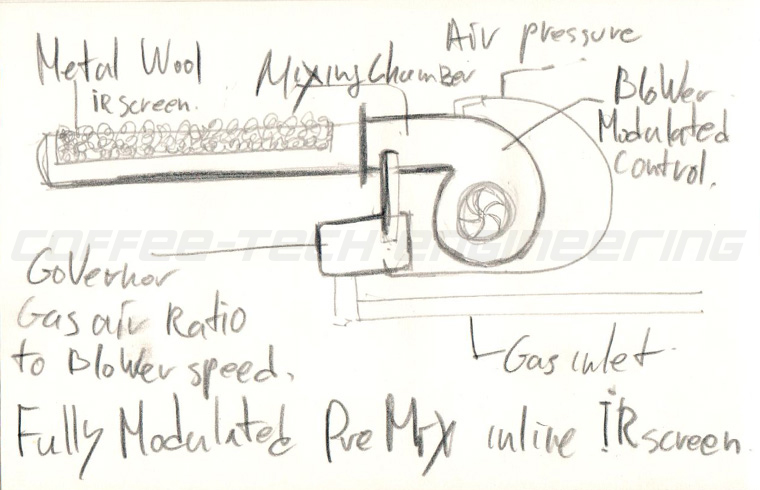 Air pressure
Metal Wool
iR screen.
Mixing Chamber
Blower
Modulated
Control.
COFFEE-TECH ENGINEERING
Governor
Gas air Ratio
to Blower speed.
Gas inlet
Fully Modulated Pre Mix inline IR screen